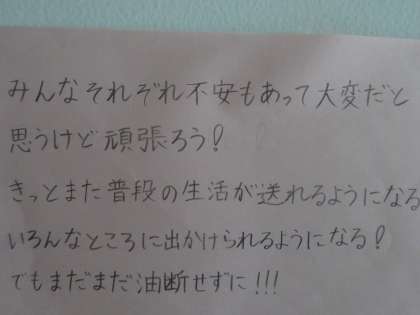 みんなそれぞれ不安もあって大変だと
思うけど頑張ろう!
きっとまた普段の生活が送れるようになる
いろんなところに出かけられるようになる!
でもまだまだ油断せずに!!!